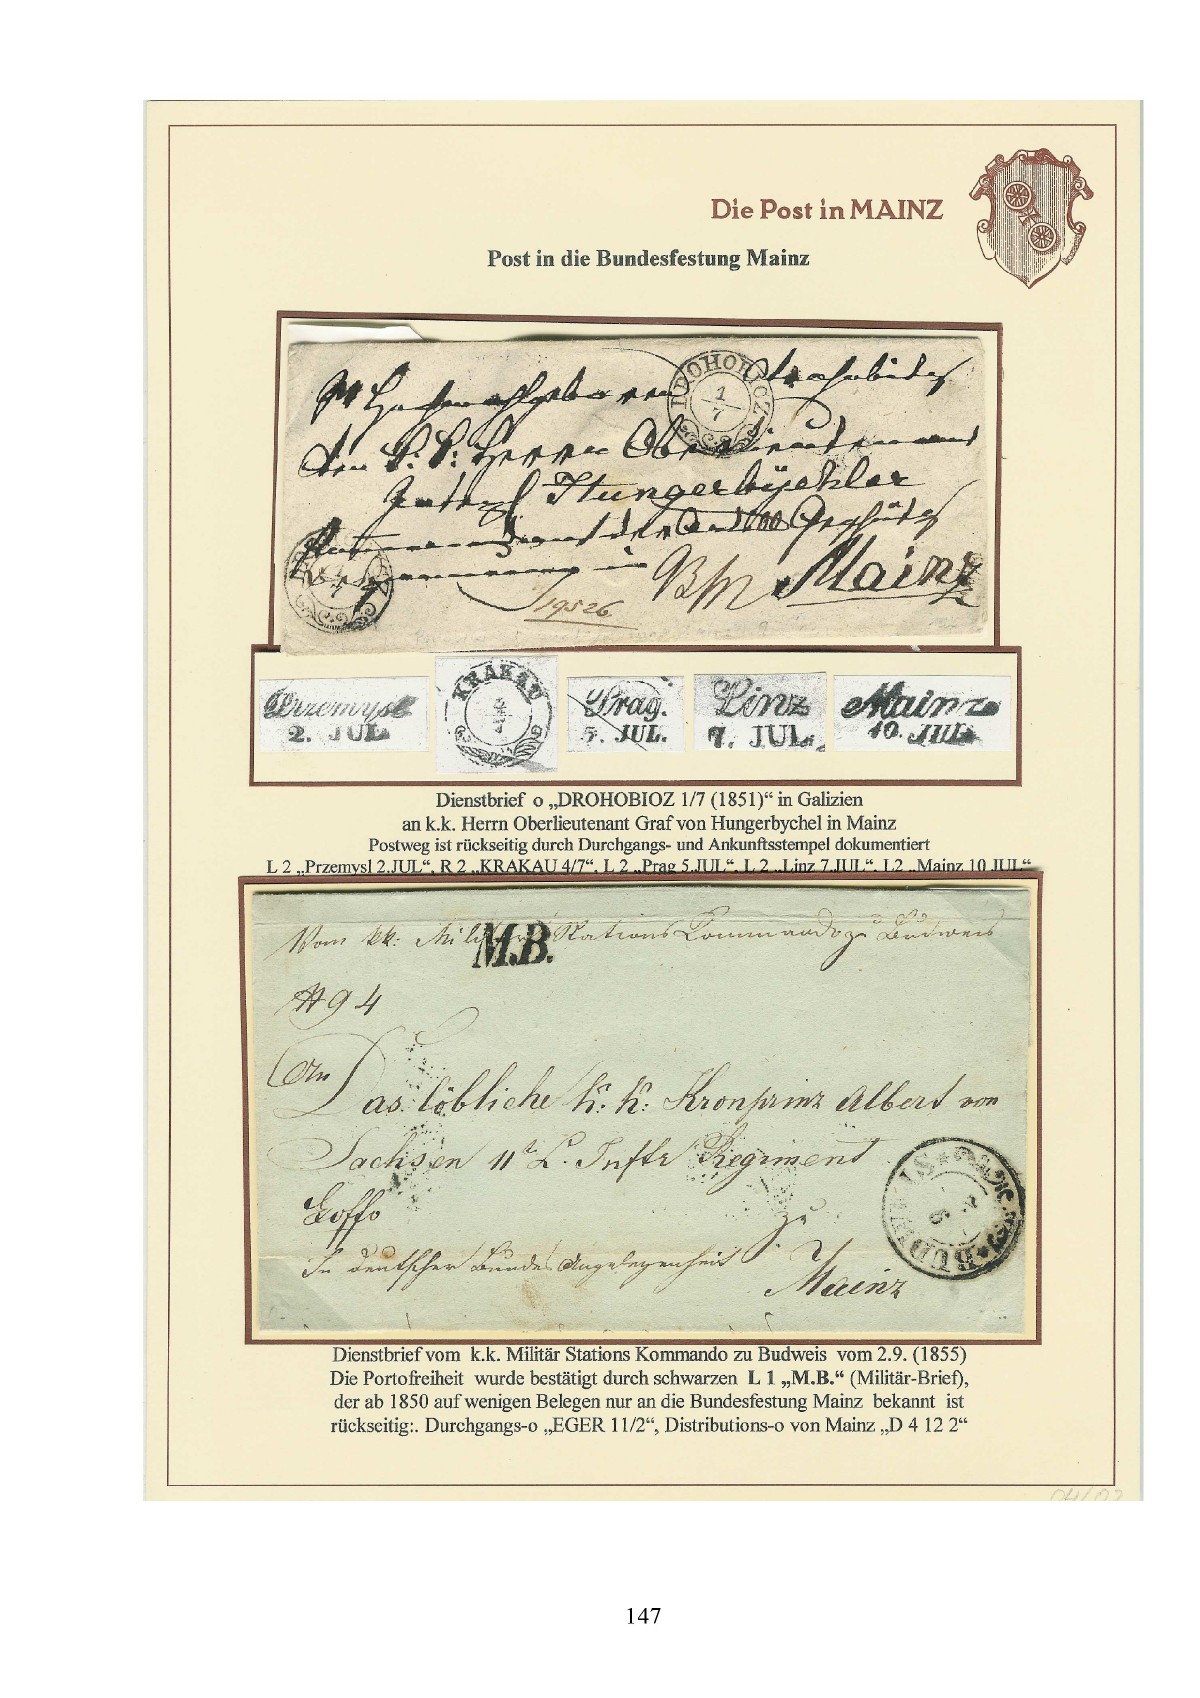 Die Post in MAINZ
Post in die Bundesfestung Mainz
DROHOBICZ
1/7
den Herrn Oberlieutenant
Hungerbÿehler
Mainz
19526
Przemysl
2. JUL.
KRAKAU
4/7
Prag.
5. JUL.
Linz
7. JUL.
Mainz
10. JUL.
Dienstbrief o „DROHOBIOZ 1/7 (1851)“ in Galizien
an k.k. Herrn Oberlieutenant Graf von Hungerbychel in Mainz
Postweg ist rückseitig durch Durchgangs- und Ankunftsstempel dokumentiert
L 2 „Przemysl 2.JUL“, R 2 „KRAKAU 4/7“, L 2 „Prag 5.JUL“, L 2 „Linz 7.JUL“, L2 „Mainz 10 JUL“
Vom kk: Militär Stations Commando zu Budweis
M.B.
#94
An
Das löbliche k: k: Kronprinz Albert von
Sachsen 11t L. Inftr Regiment
zu
In deutscher Bundes Angelegenheit
Mainz
BUDWEIS
Dienstbrief vom k.k. Militär Stations Kommando zu Budweis vom 2.9. (1855)
Die Portofreiheit wurde bestätigt durch schwarzen L 1 „M.B.“ (Militär-Brief),
der ab 1850 auf wenigen Belegen nur an die Bundesfestung Mainz bekannt ist
rückseitig:. Durchgangs-o „EGER 11/2“, Distributions-o von Mainz „D 4 12 2“
147